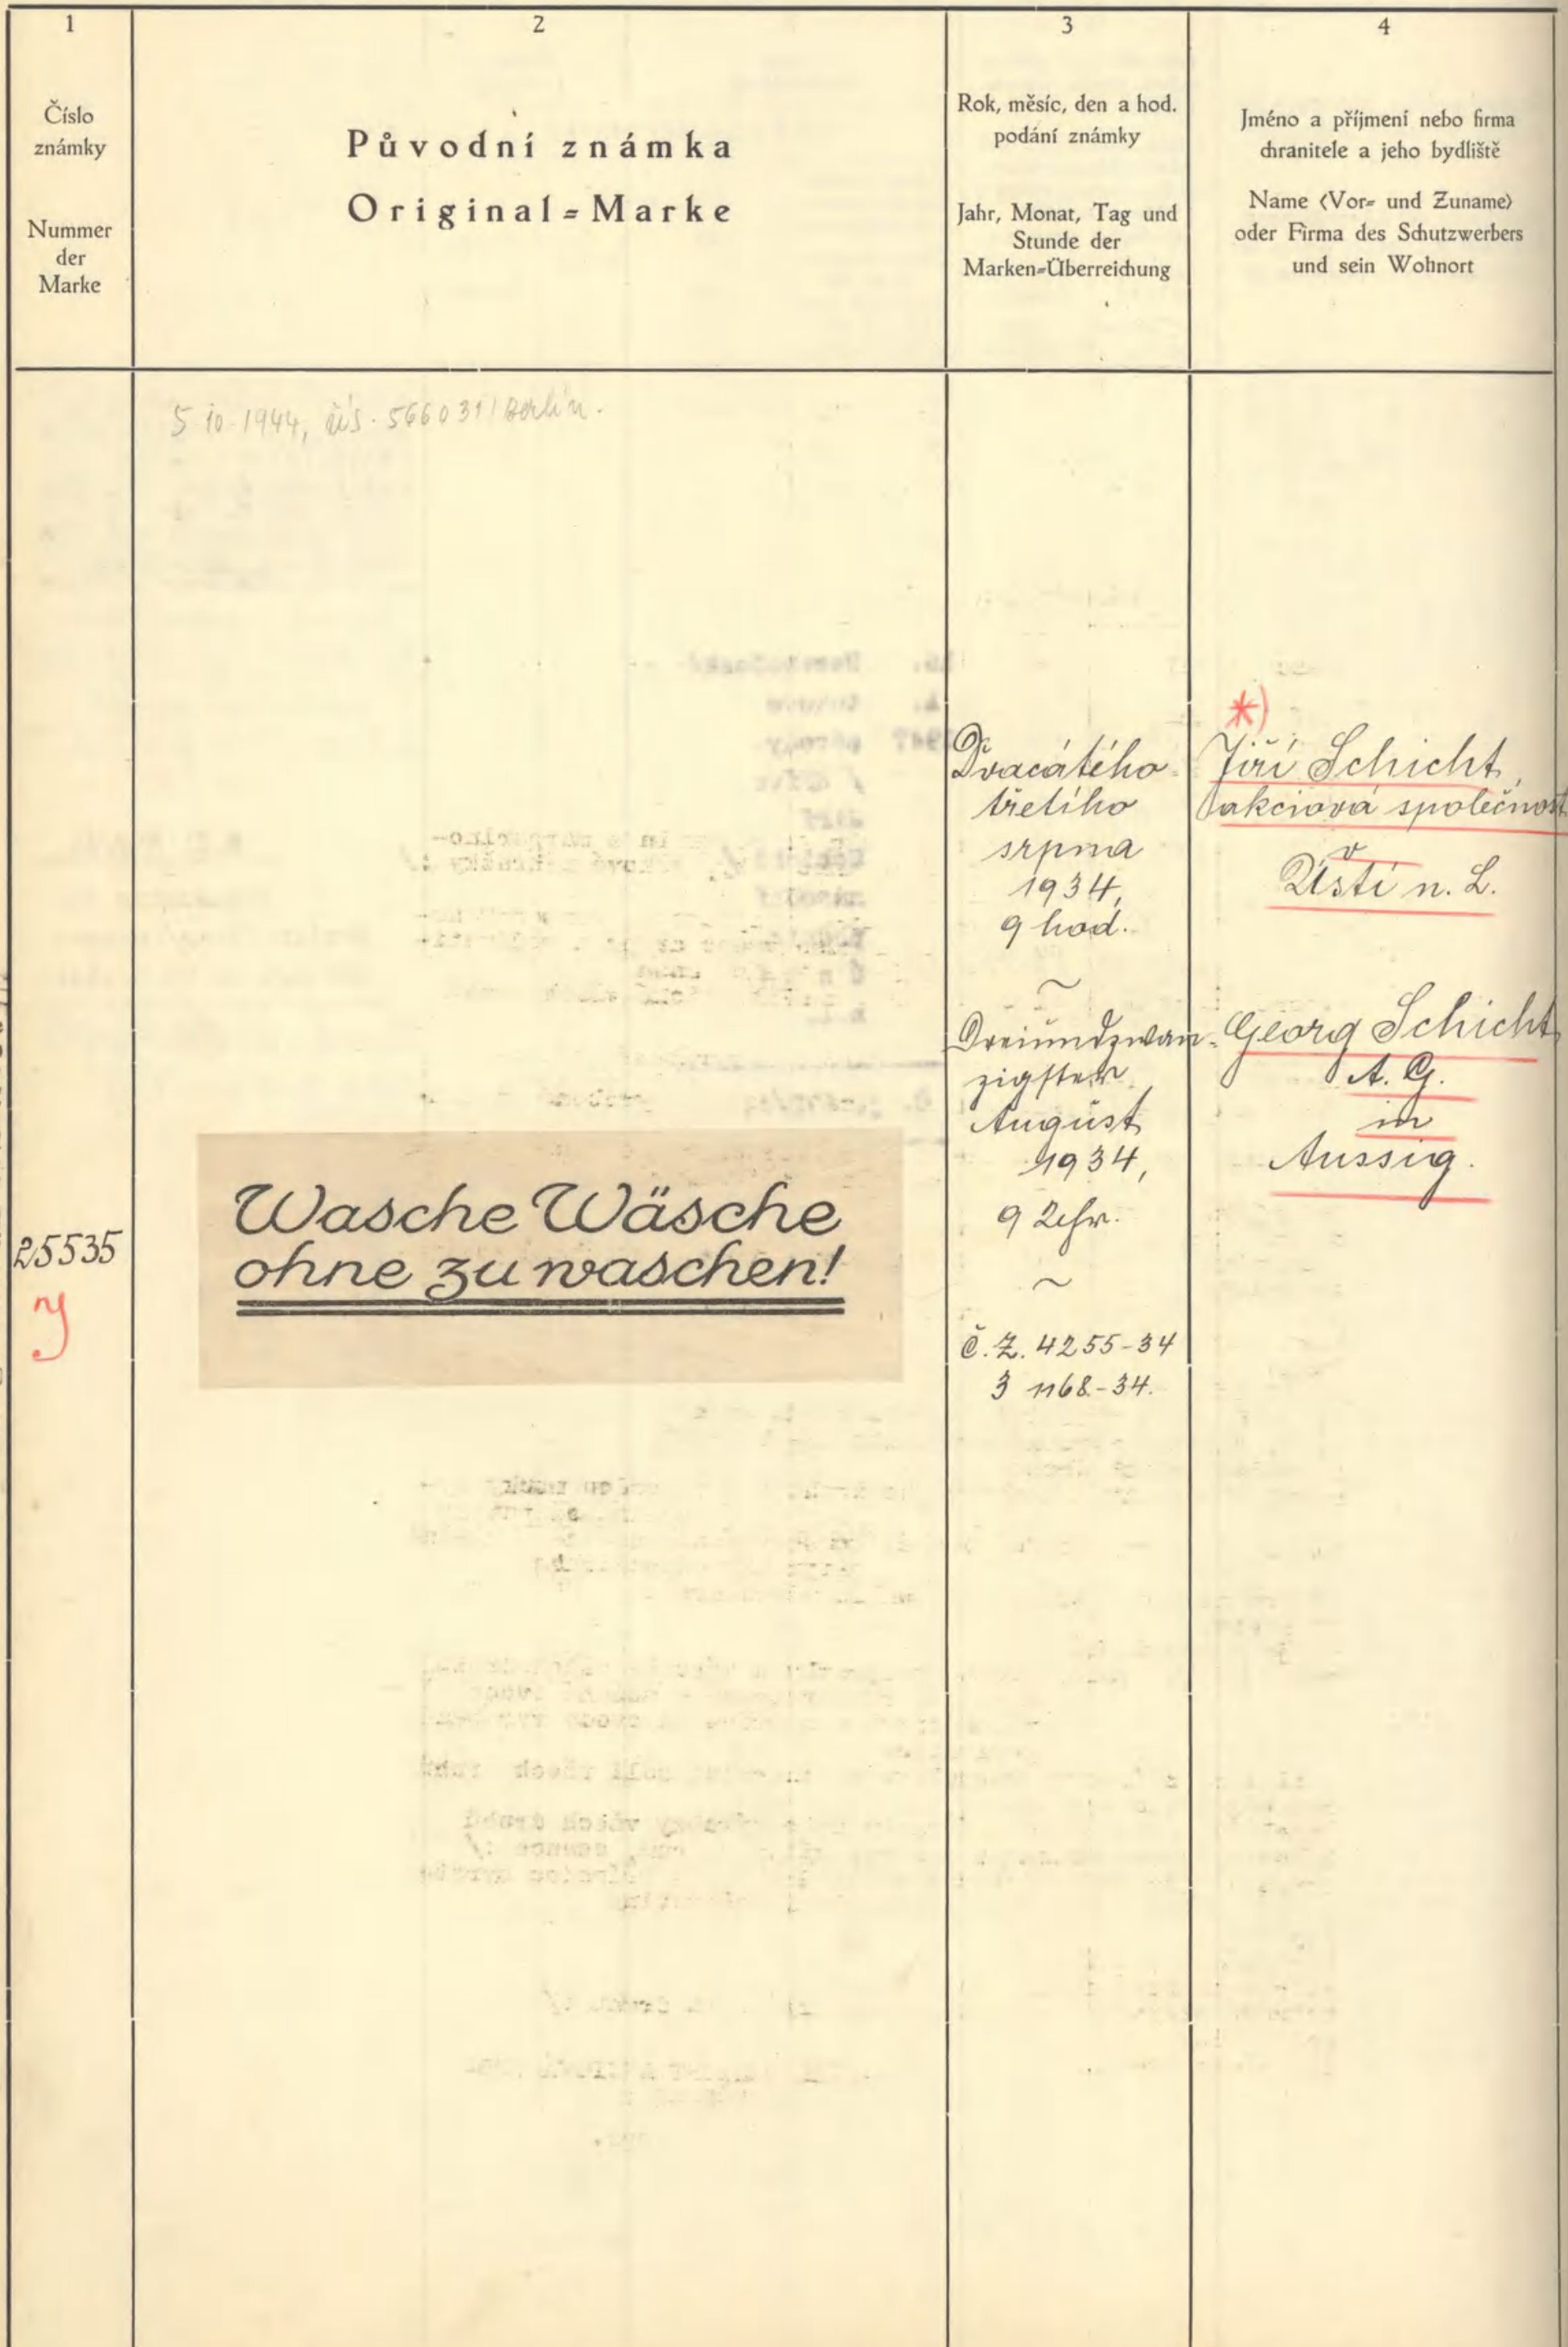 1
Číslo
známky
Nummer
der
Marke
2
Původní známka
Original=Marke
3
Rok, měsíc, den a hod.
podání známky
Jahr, Monat, Tag und
Stunde der
Marken=Überreichung
4
Jméno a příjmení nebo firma
chranitele a jeho bydliště
Name (Vor= und Zuname)
oder Firma des Schutzwerbers
und sein Wohnort
5 10. 1944, čís. 566031/Berlin.
25535
Wasche Wäsche
ohne zu waschen!
Dvacátého
třetího
srpna
1934,
9 hod.
~
Dreiundzwan-
zigster
August
1934,
9 Uhr.
~
č.ž. 4255-34
3 1168.-34.
*)
Jiří Schicht,
akciová společnost
v
Ústí n. L.
Georg Schicht
A. G.
in
Aussig.